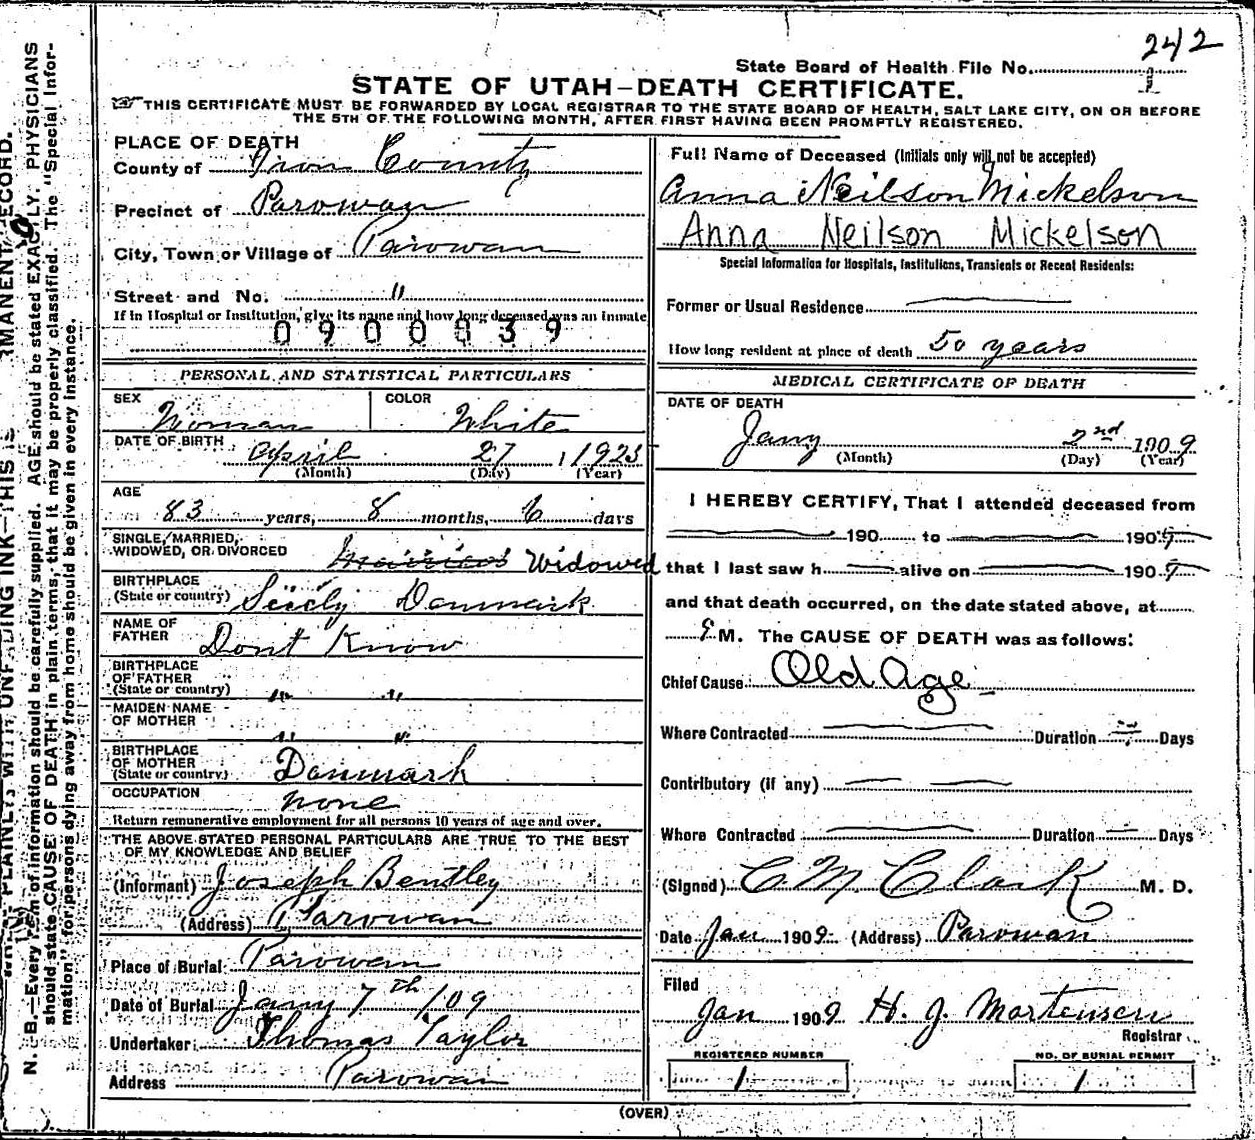 242
State Board of Health File No. 1
STATE OF UTAH—DEATH CERTIFICATE.
THIS CERTIFICATE MUST BE FORWARDED BY LOCAL REGISTRAR TO THE STATE BOARD OF HEALTH, SALT LAKE CITY, ON OR BEFORE
THE 5TH OF THE FOLLOWING MONTH, AFTER FIRST HAVING BEEN PROMPTLY REGISTERED.
PLACE OF DEATH
County of Iron County
Precinct of Parowan
City, Town or Village of Parowan
Street and No. "
If in Hospital or Institution, give its name and how long deceased was an inmate
0900039
PERSONAL AND STATISTICAL PARTICULARS
SEX Woman COLOR White
DATE OF BIRTH April 27, 1925
(Month) (Day) (Year)
AGE 83 years, 8 months, 6 days
SINGLE, MARRIED,
WIDOWED, OR DIVORCED Married Widowed
BIRTHPLACE
(State or country) Danmark
NAME OF
FATHER Dont Know
BIRTHPLACE
OF FATHER
(State or country) " "
MAIDEN NAME
OF MOTHER " "
BIRTHPLACE
OF MOTHER
(State or country) Danmark
OCCUPATION none
Return remunerative employment for all persons 10 years of age and over.
THE ABOVE STATED PERSONAL PARTICULARS ARE TRUE TO THE BEST
OF MY KNOWLEDGE AND BELIEF
(Informant) Joseph Bentley
(Address) Parowan
Place of Burial Parowan
Date of Burial Jany 7th /09
Undertaker Thomas Taylor
Address Parowan
Full Name of Deceased (Initials only will not be accepted)
Anna Neilson Mickelson
Anna Neilson Mickelson
Special Information for Hospitals, Institutions, Transients or Recent Residents:
Former or Usual Residence
How long resident at place of death 50 years
MEDICAL CERTIFICATE OF DEATH
DATE OF DEATH
Jany 2nd 1909
(Month) (Day) (Year)
I HEREBY CERTIFY, That I attended deceased from
190 to 1909
that I last saw h alive on 1909
and that death occurred, on the date stated above, at
M. The CAUSE OF DEATH was as follows:
Chief Cause Old Age
Where Contracted Duration Days
Contributory (if any)
Where Contracted Duration Days
(Signed) C M Clark M. D.
Date Jan 1909 (Address) Parowan
Filed
Jan 1909 H. J. Mortensen
Registrar
REGISTERED NUMBER
1
NO. OF BURIAL PERMIT
1
(OVER)
N. B.—Every item of information should be carefully supplied. AGE should be stated EXACTLY. PHYSICIANS
should state CAUSE OF DEATH in plain terms, that it may be properly classified. The "Special Infor-
mation" for persons dying away from home should be given in every instance.